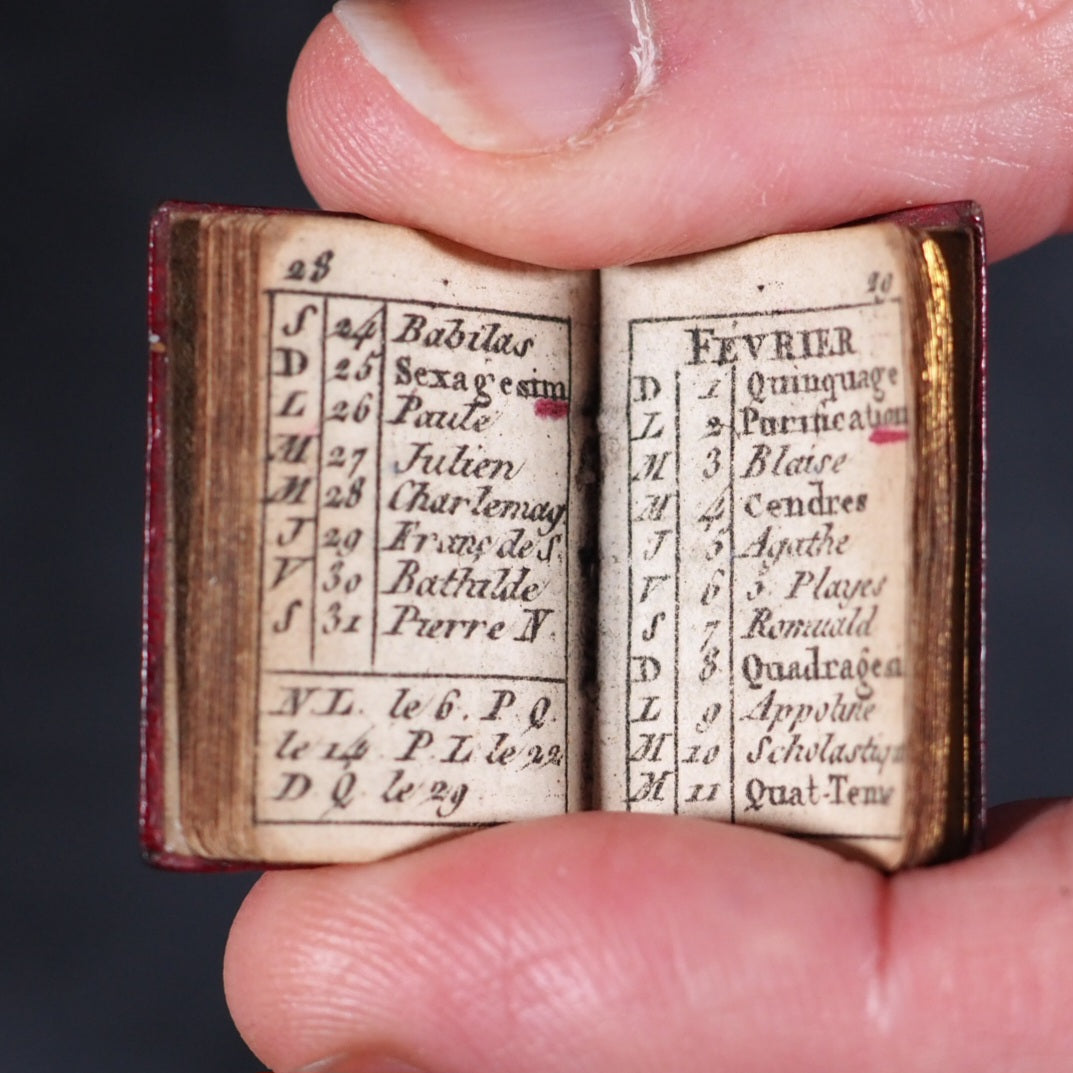 28
S 24 Babilas
D 25 Sexagesim
L 26 Paule
M 27 Julien
M 28 Charlemag
J 29 Franç de S.
V 30 Bathilde
S 31 Pierre N.
N L. le 6. P Q
le 14 P L le 22
D Q le 29
FÉVRIER
D 1 Quinquage
L 2 Purification
M 3 Blaise
M 4 Cendres
J 5 Agathe
V 6 5. Playes
S 7 Romuald
D 8 Quadragesi
L 9 Appoline
M 10 Scholastiq
M 11 Quat-Tem